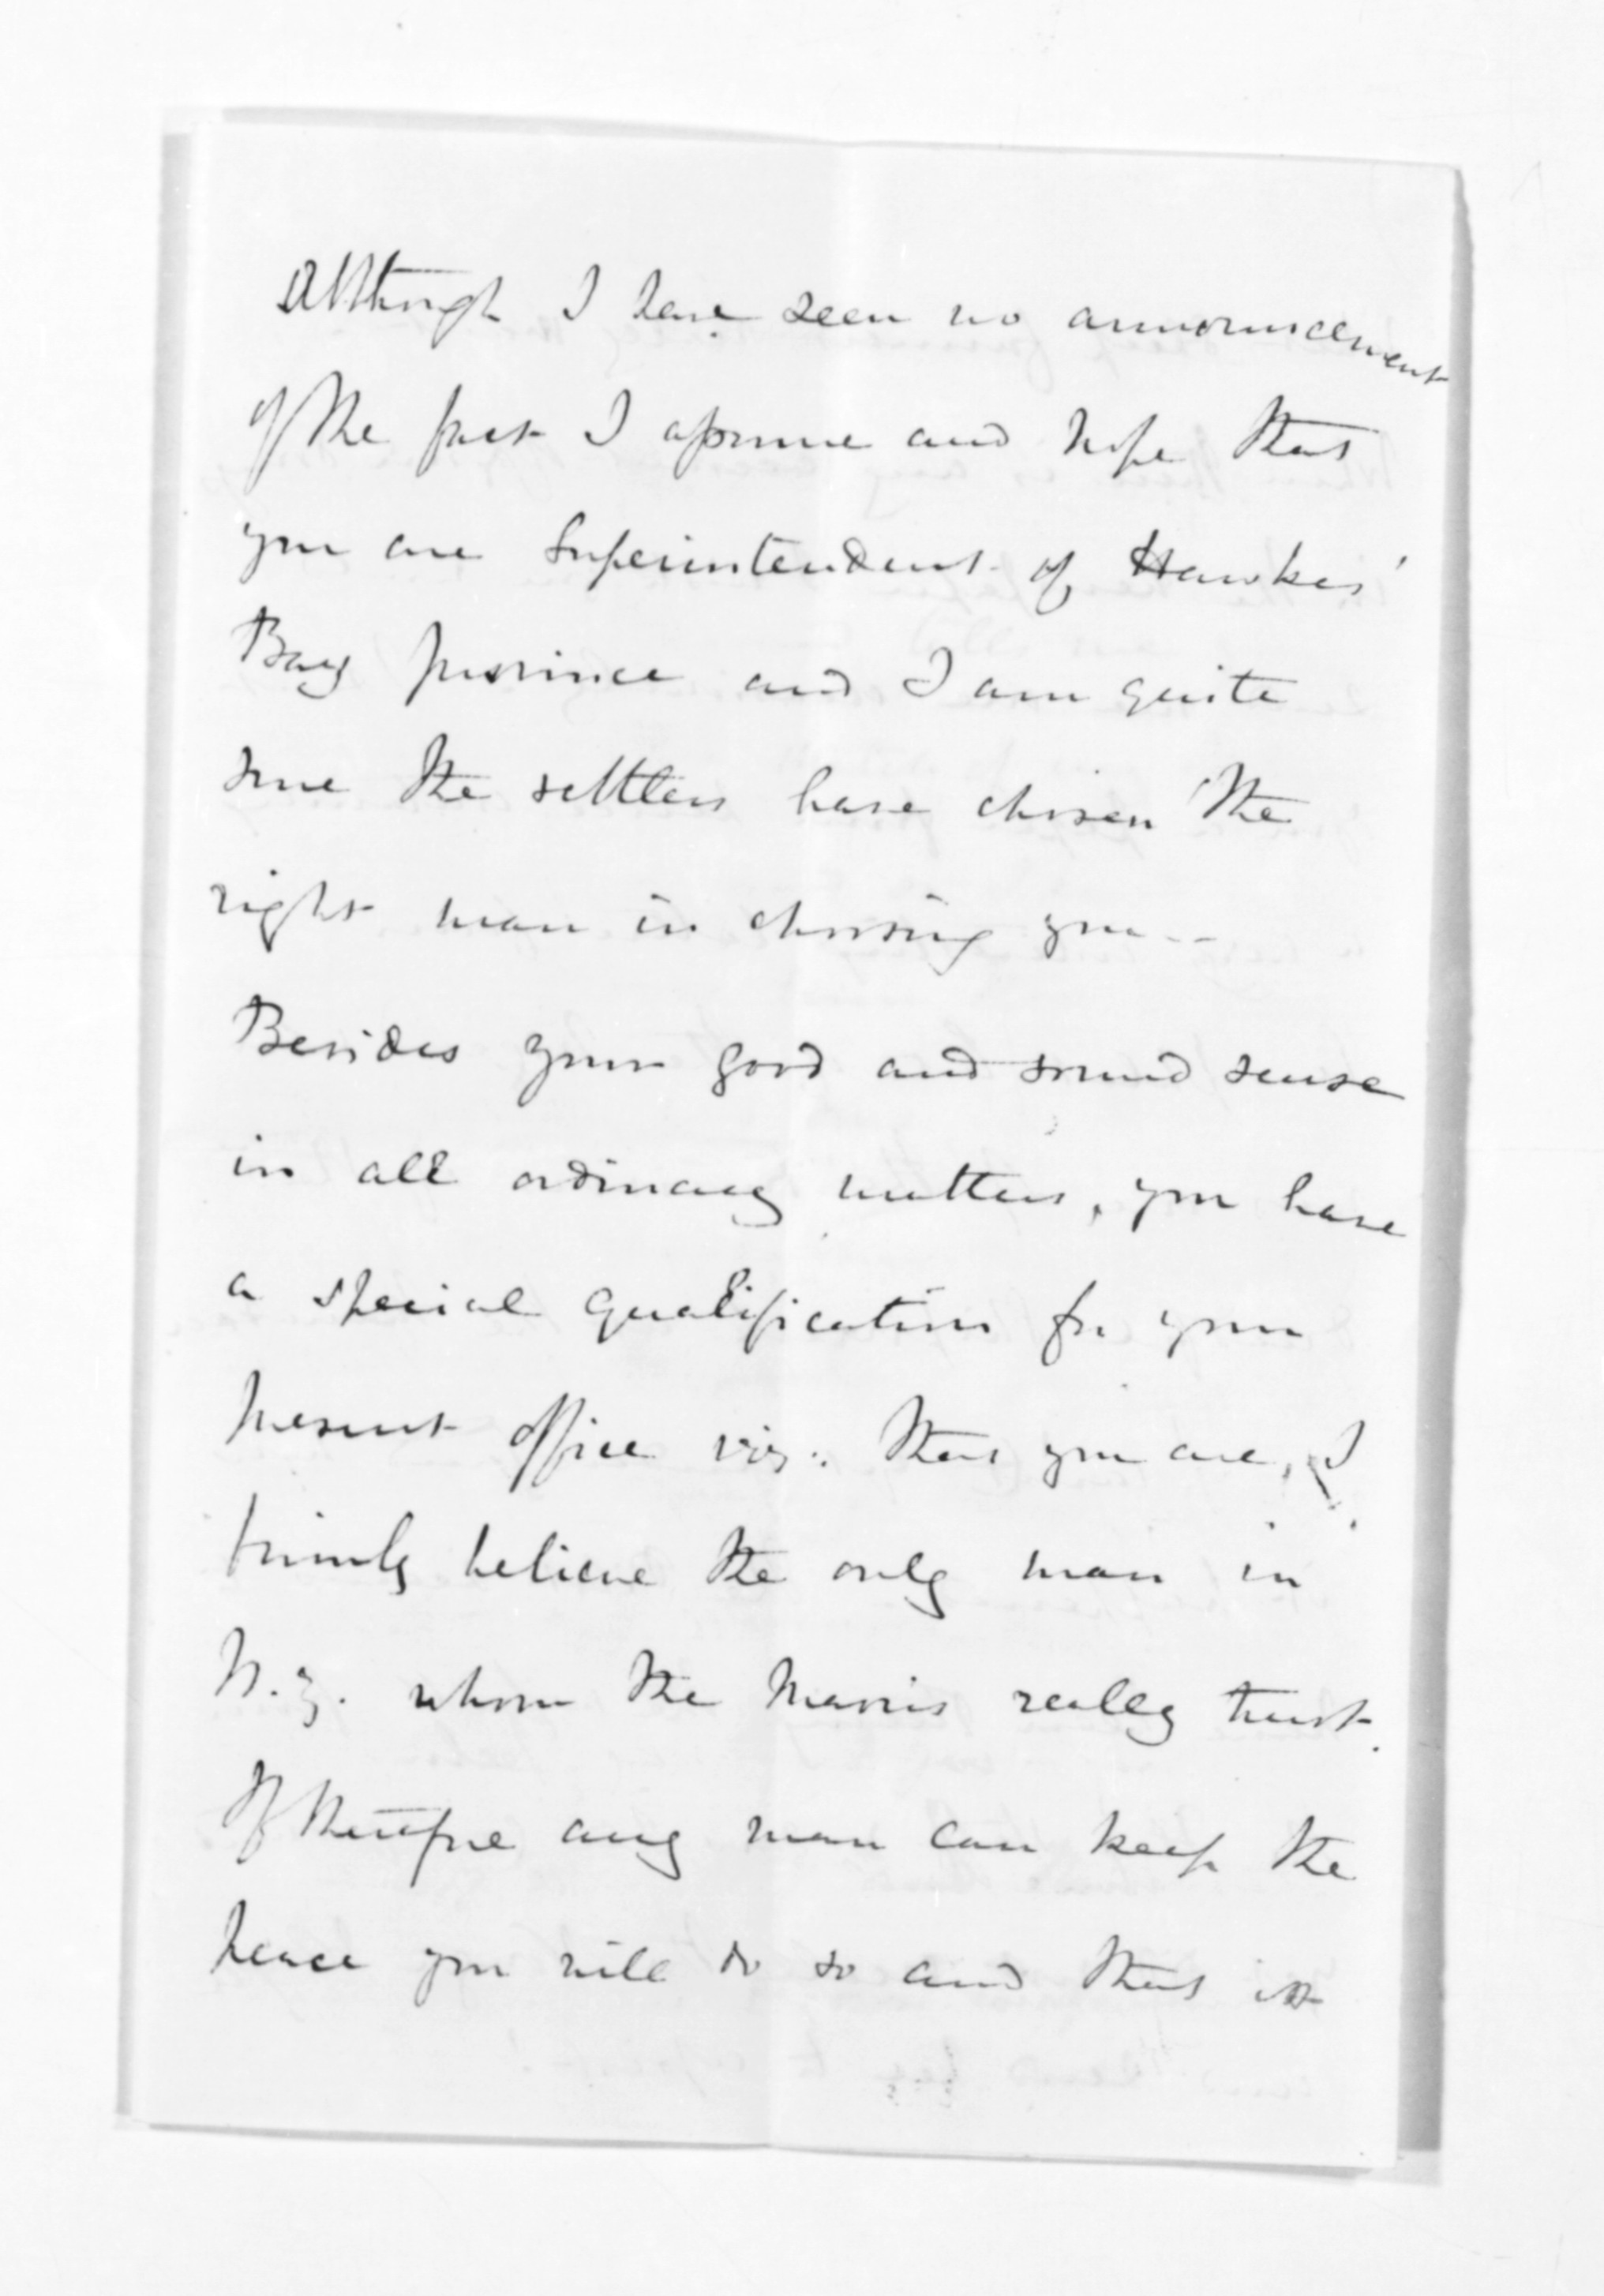 Although I have seen no announcement
of the fact I assume and hope that
you are Superintendent of Hawkes'
Bay province and I am quite
sure the settlers have chosen the
right man in choosing you --
Besides your good and sound sense
in all ordinary matters, you have
a special qualification for your
present office viz: that you are, I
firmly believe the only man in
N.Z. whom the Maoris really trust.
If therefore any man can keep the
peace you will do so and that it